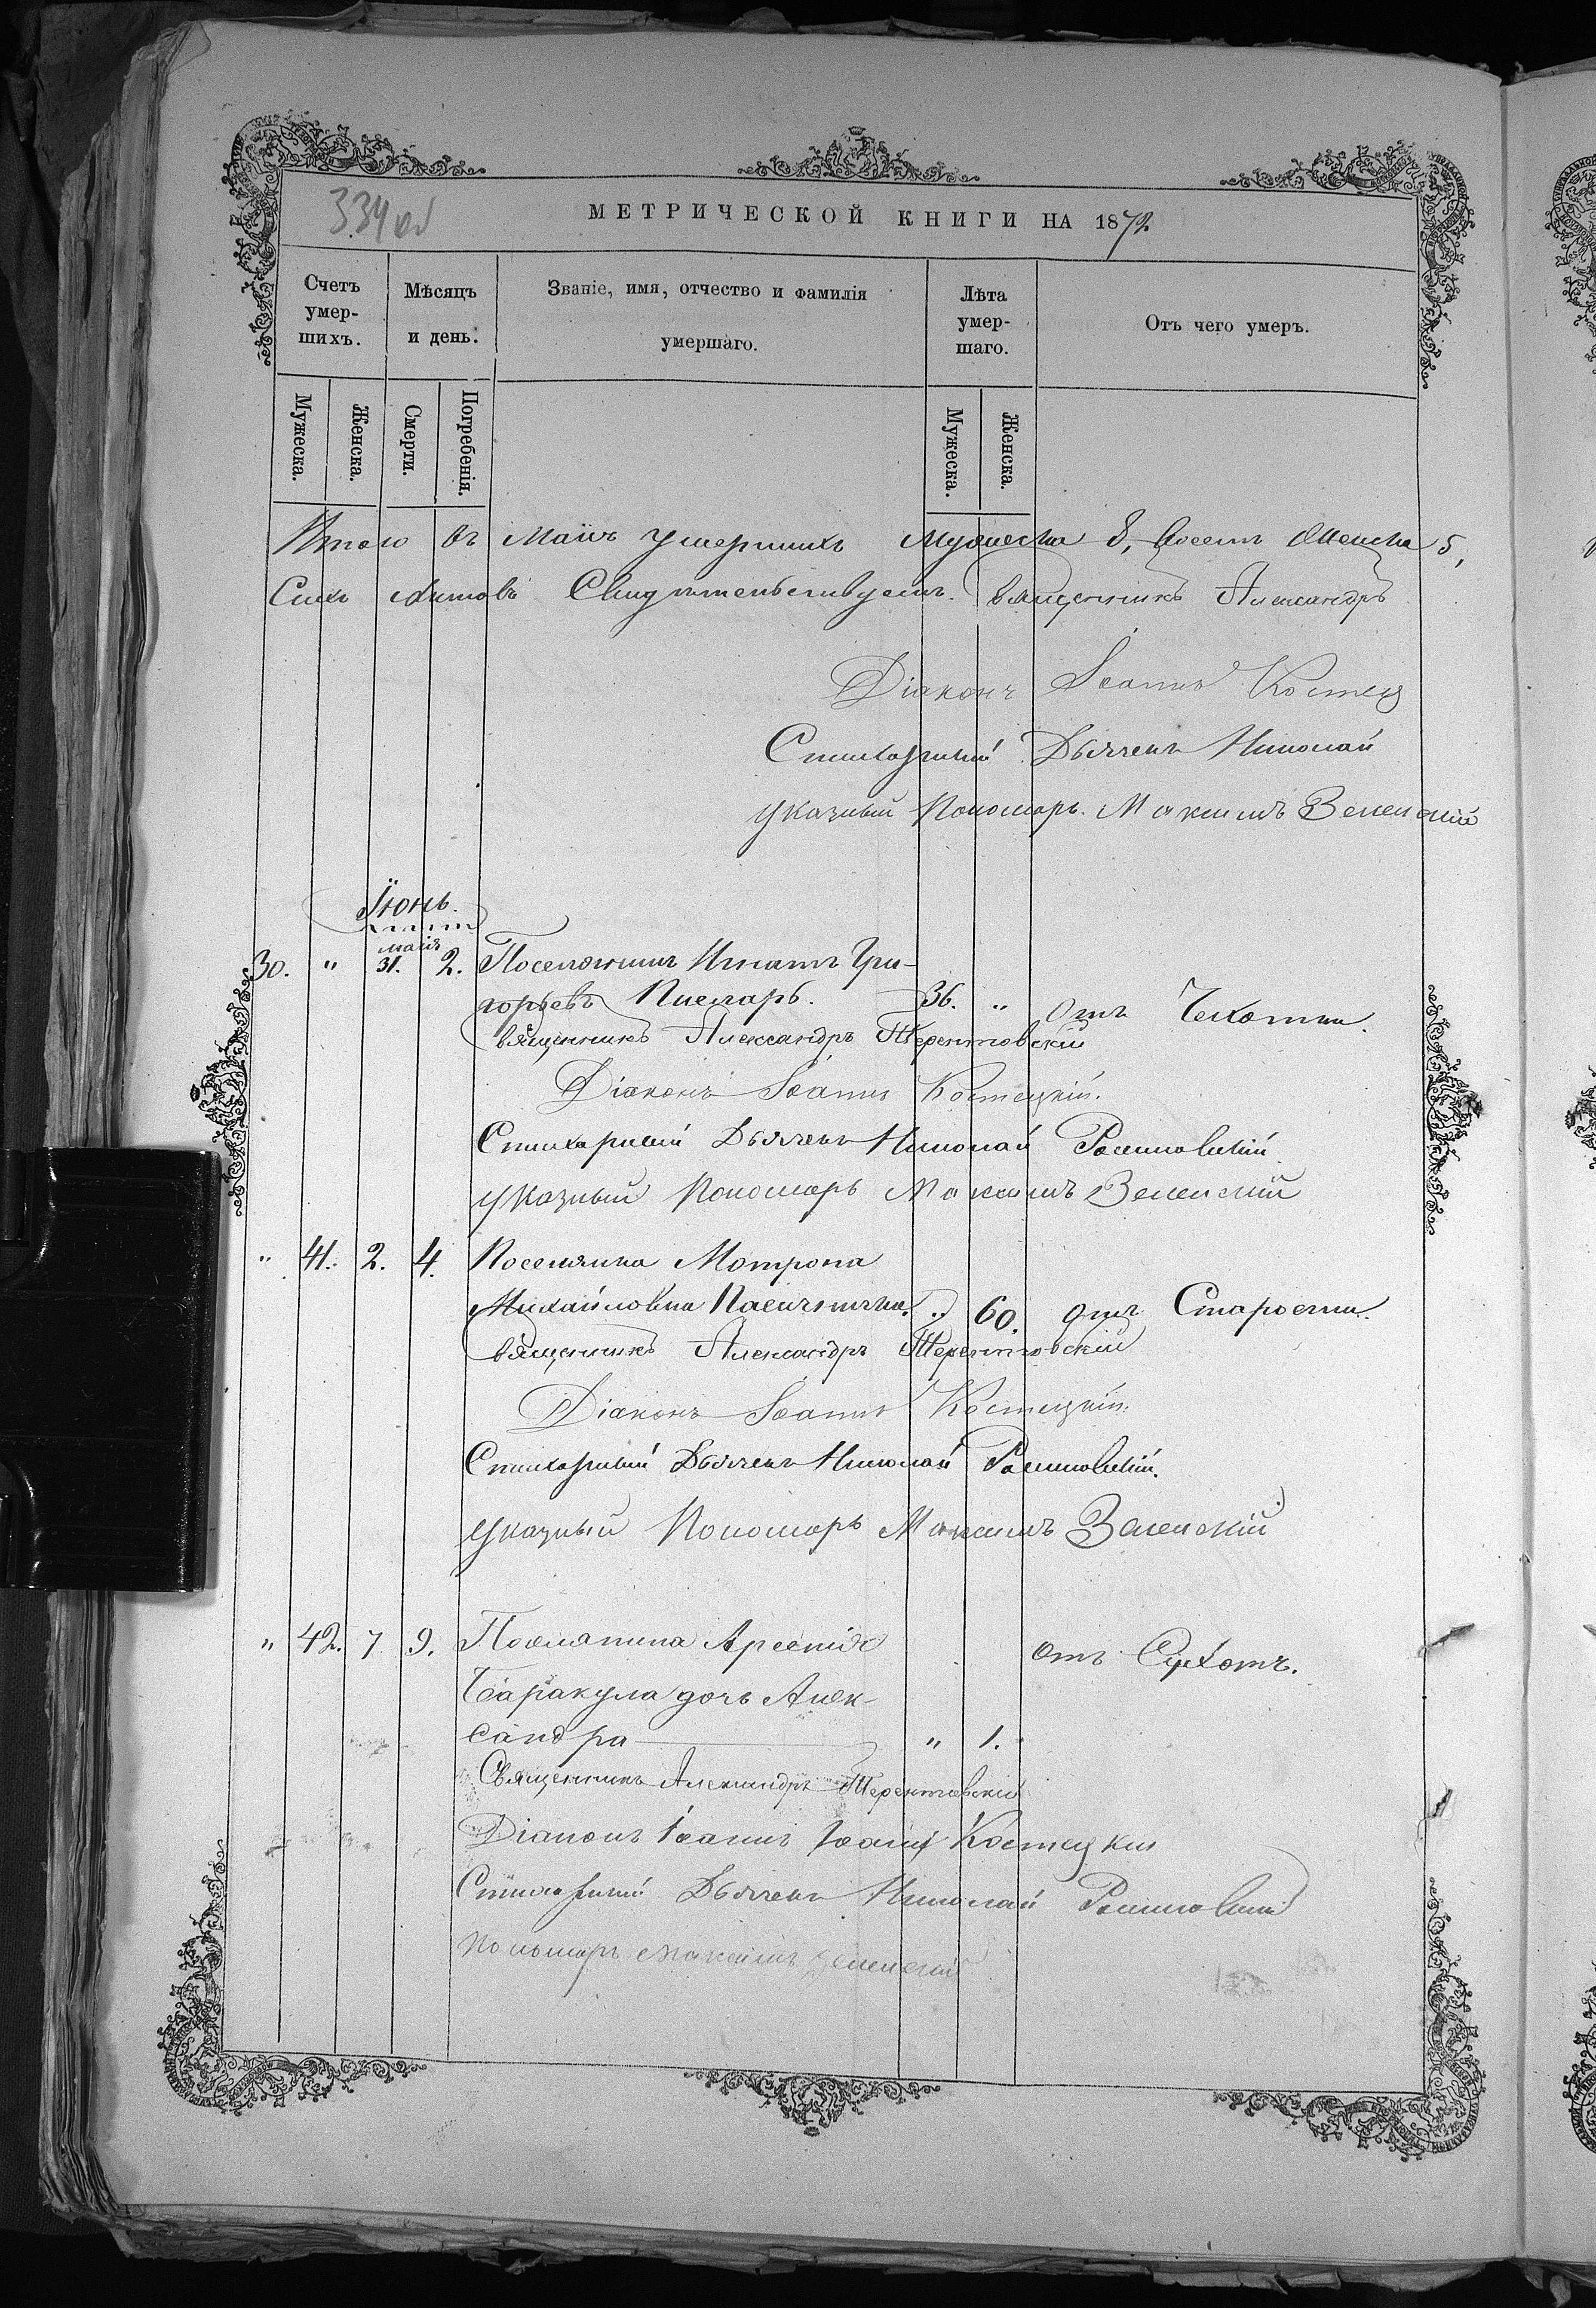 334 об
МЕТРИЧЕСКОЙ КНИГИ НА 1872
Счетъ умер-шихъ.
Мѣсяцъ и день.
Званіе, имя, отчество и фамилія умершаго.
Лѣта умер-шаго.
Отъ чего умеръ.
Мужеска.
Женска.
Смерти.
Погребенія.
Мужеска.
Женска.
Итого въ Маіѣ умершихъ Мужеска 8, Женска 5,
Сихъ Актовъ Свидѣтельствуемъ. Священникъ Александръ
Діаконъ Іоаннъ Костец
Стихарный Дьячекъ Николай
Указный Пономарь. Максимъ Зеленскій
Іюнь.
маія
30. " 31. 2. Поселянинъ Игнатъ Гри-
горьевъ Писларь. 36. " Отъ Чехотки.
Священникъ Александръ Терентовскій
Діаконъ Іоаннъ Костецкій.
Стихарный Дьячекъ Николай
Указный Пономарь Максимъ Зеленскій
" 41. 2. 4. Поселянка Мотрона
Михайловна " 60. отъ Старости.
Священникъ Александръ Терентовскій
Діаконъ Іоаннъ Костецкій.
Стихарный Дьячекъ Николай
Указный Пономарь Максимъ Зеленскій
" 42. 7 9. Поселянина Арсенія отъ Сухотъ.
Баракула дочь Алек-
сандра " 1.
Священникъ Александръ Терентовскій
Діаконъ Іоаннъ Іоаннъ Костецкій
Стихарный Дьячекъ Николай
Пономарь Максимъ Зеленскій